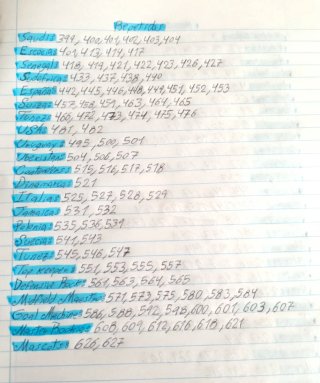 Repetidas
Saudis 399, 400, 401, 402, 403, 404
Escocia 401, 413, 414, 417
Senegal 418, 419, 421, 422, 423, 426, 427
Sudafrica 433, 437, 438, 440
España 442, 445, 446, 448, 449, 451, 452, 453
Suiza 457, 458, 459, 463, 464, 465
Tunez 466, 472, 473, 474, 475, 476
USA 481, 482
Uruguay 495, 500, 501
Uzbekistan 504, 506, 507
515, 516, 517, 518
Dinamarca 521
Italia 525, 527, 528, 529
Jamaica 531, 532
Polonia 535, 536, 539
Suecia 541, 543
Tunez 545, 546, 547
Top Keepers 551, 553, 555, 557
Defensive Rocks 561, 563, 564, 565
Midfield Maestros 571, 573, 575, 580, 583, 584
Goal Machine 586, 588, 592, 598, 600, 601, 603, 607
Master Rookies 608, 609, 612, 616, 618, 621
Mascots 626, 627